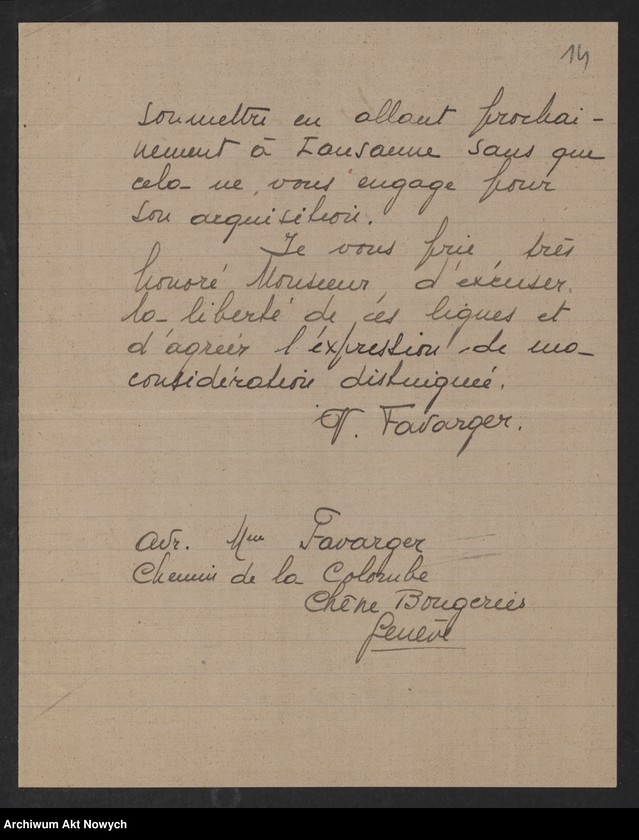 14
soumettre en allant prochai-
nement à Lausanne sans que
cela ne vous engage pour
son acquisition.
Je vous prie, très
honoré Monsieur, d'excuser
la liberté de ces lignes et
d'agréér l'éxpression de ma
considération distinguée.
V. Favarger.
Adr. Mme Favarger
Chemin de la Colombe
Chêne Bougeries
Genève
Archiwum Akt Nowych